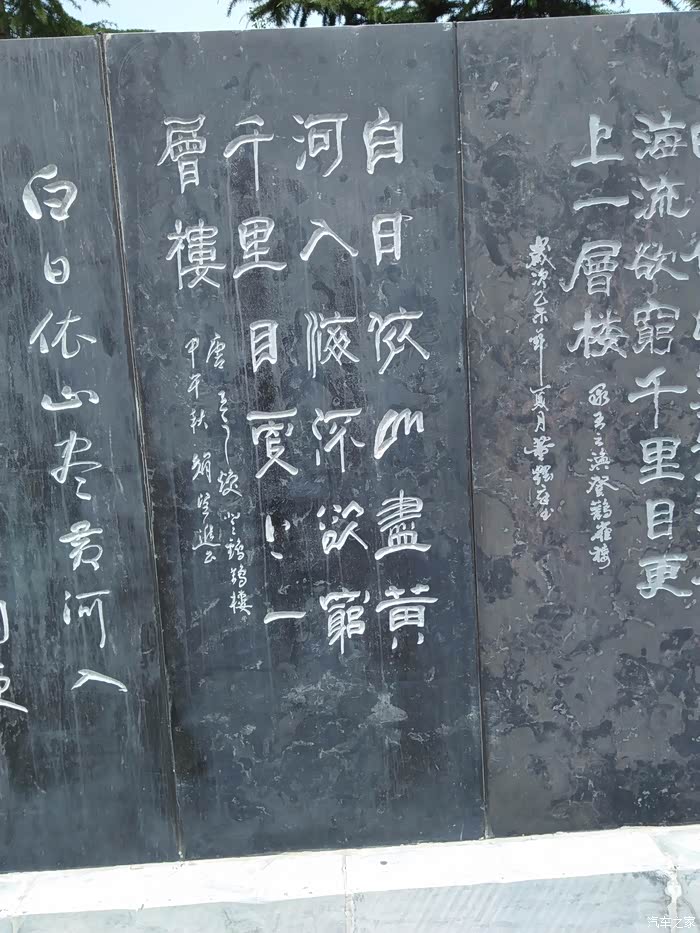 海流欲窮千里目更
上一層楼
王之渙登鸛雀楼
歲次乙未年夏月
白日依山盡黄
河入海流欲窮
千里目更上一
層樓
唐王之渙登鸛鵲樓
甲午秋
白日依山尽黄河入